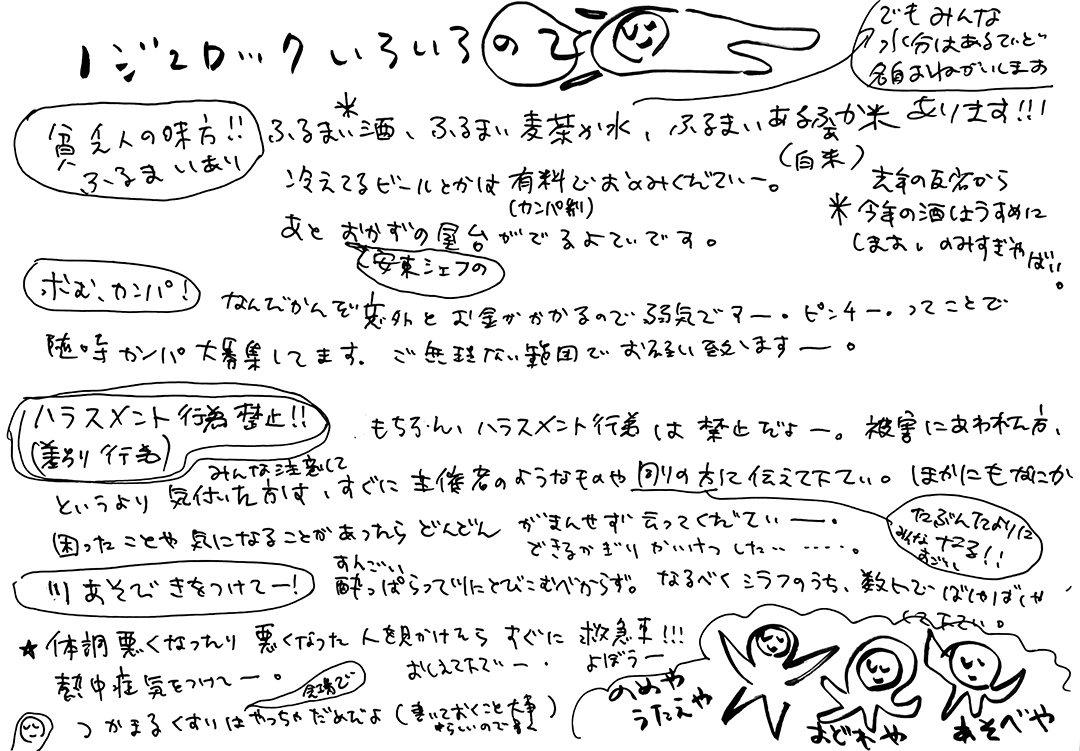 ノジュロックいろいろのて
でもみんな
水分はあるていど
各自おねがいします
貧乏人の味方!!
ふるまいあり
ふるまい酒、ふるまい麦茶か水、ふるまいあるふぁか米あります!!!
(白米)
冷えてるビールとかは有料でおのみくださいー。
(カンパ制)
去年の反省から
*今年の酒はうすめに
します。のみすぎやばい。
あとおかずの屋台がでるよていです。
安東シェフの
求む、カンパ!
なんだかんだ意外とお金がかかるので弱気ですー。ピンチー。ってことで
随時カンパ大募集してます。ご無理ない範囲でお願い致しますー。
ハラスメント行為禁止!!
もちろん、ハラスメント行為は禁止だよー。被害にあわれた方、
みんな注意して
というより気付いた方は、すぐに主催者のようなものや回りの方に伝えて下さい。ほかにもなにか
困ったことや気になることがあったらどんどんがまんせず言ってくださいー。
できるかぎりかいけつしたい……。
たぶんたよりに
みんななる!!
川あそびきをつけてー!
すんごい
酔っぱらって川にとびこむべからず。なるべくシラフのうち、数人でばしゃばしゃ
して下さい。
★体調悪くなったり悪くなった人を見かけたらすぐに救急車!!!
おしえて下さいー.
よぼうー
熱中症気をつけてー。
会場で
つかまるくすりはやっちゃだめだよ(書いておくこと大事
らしいので書く)
のめや
うたえや
おどれや
あそべや